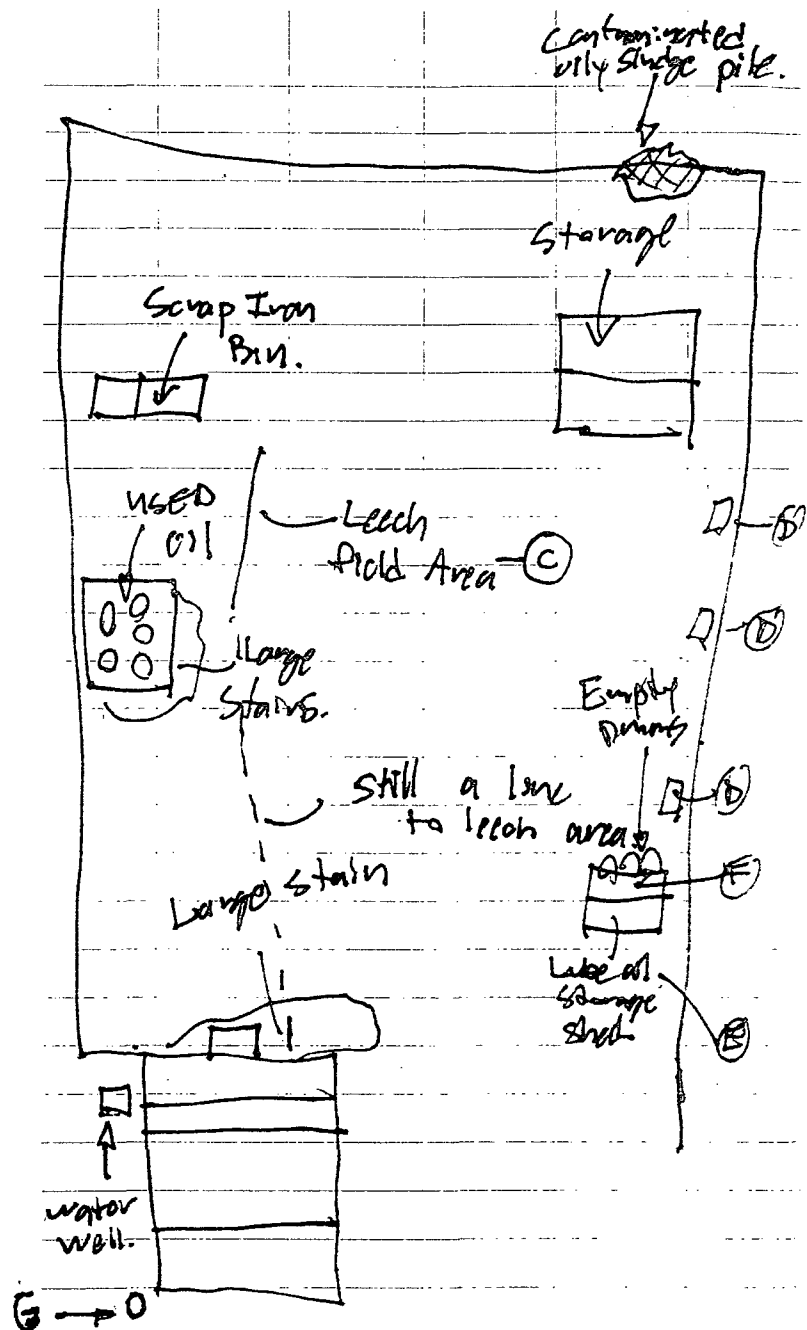 Contaminated
oily Sludge pile.
Storage
Scrap Iron
Bin.
USED
Oil
Leech
Field Area - C
D
D
Large
Stains.
Empty
Drums
Still a line
to leech area
D
F
Large Stain
Lube oil
Storage
Shed.
E
water
well.
G → O